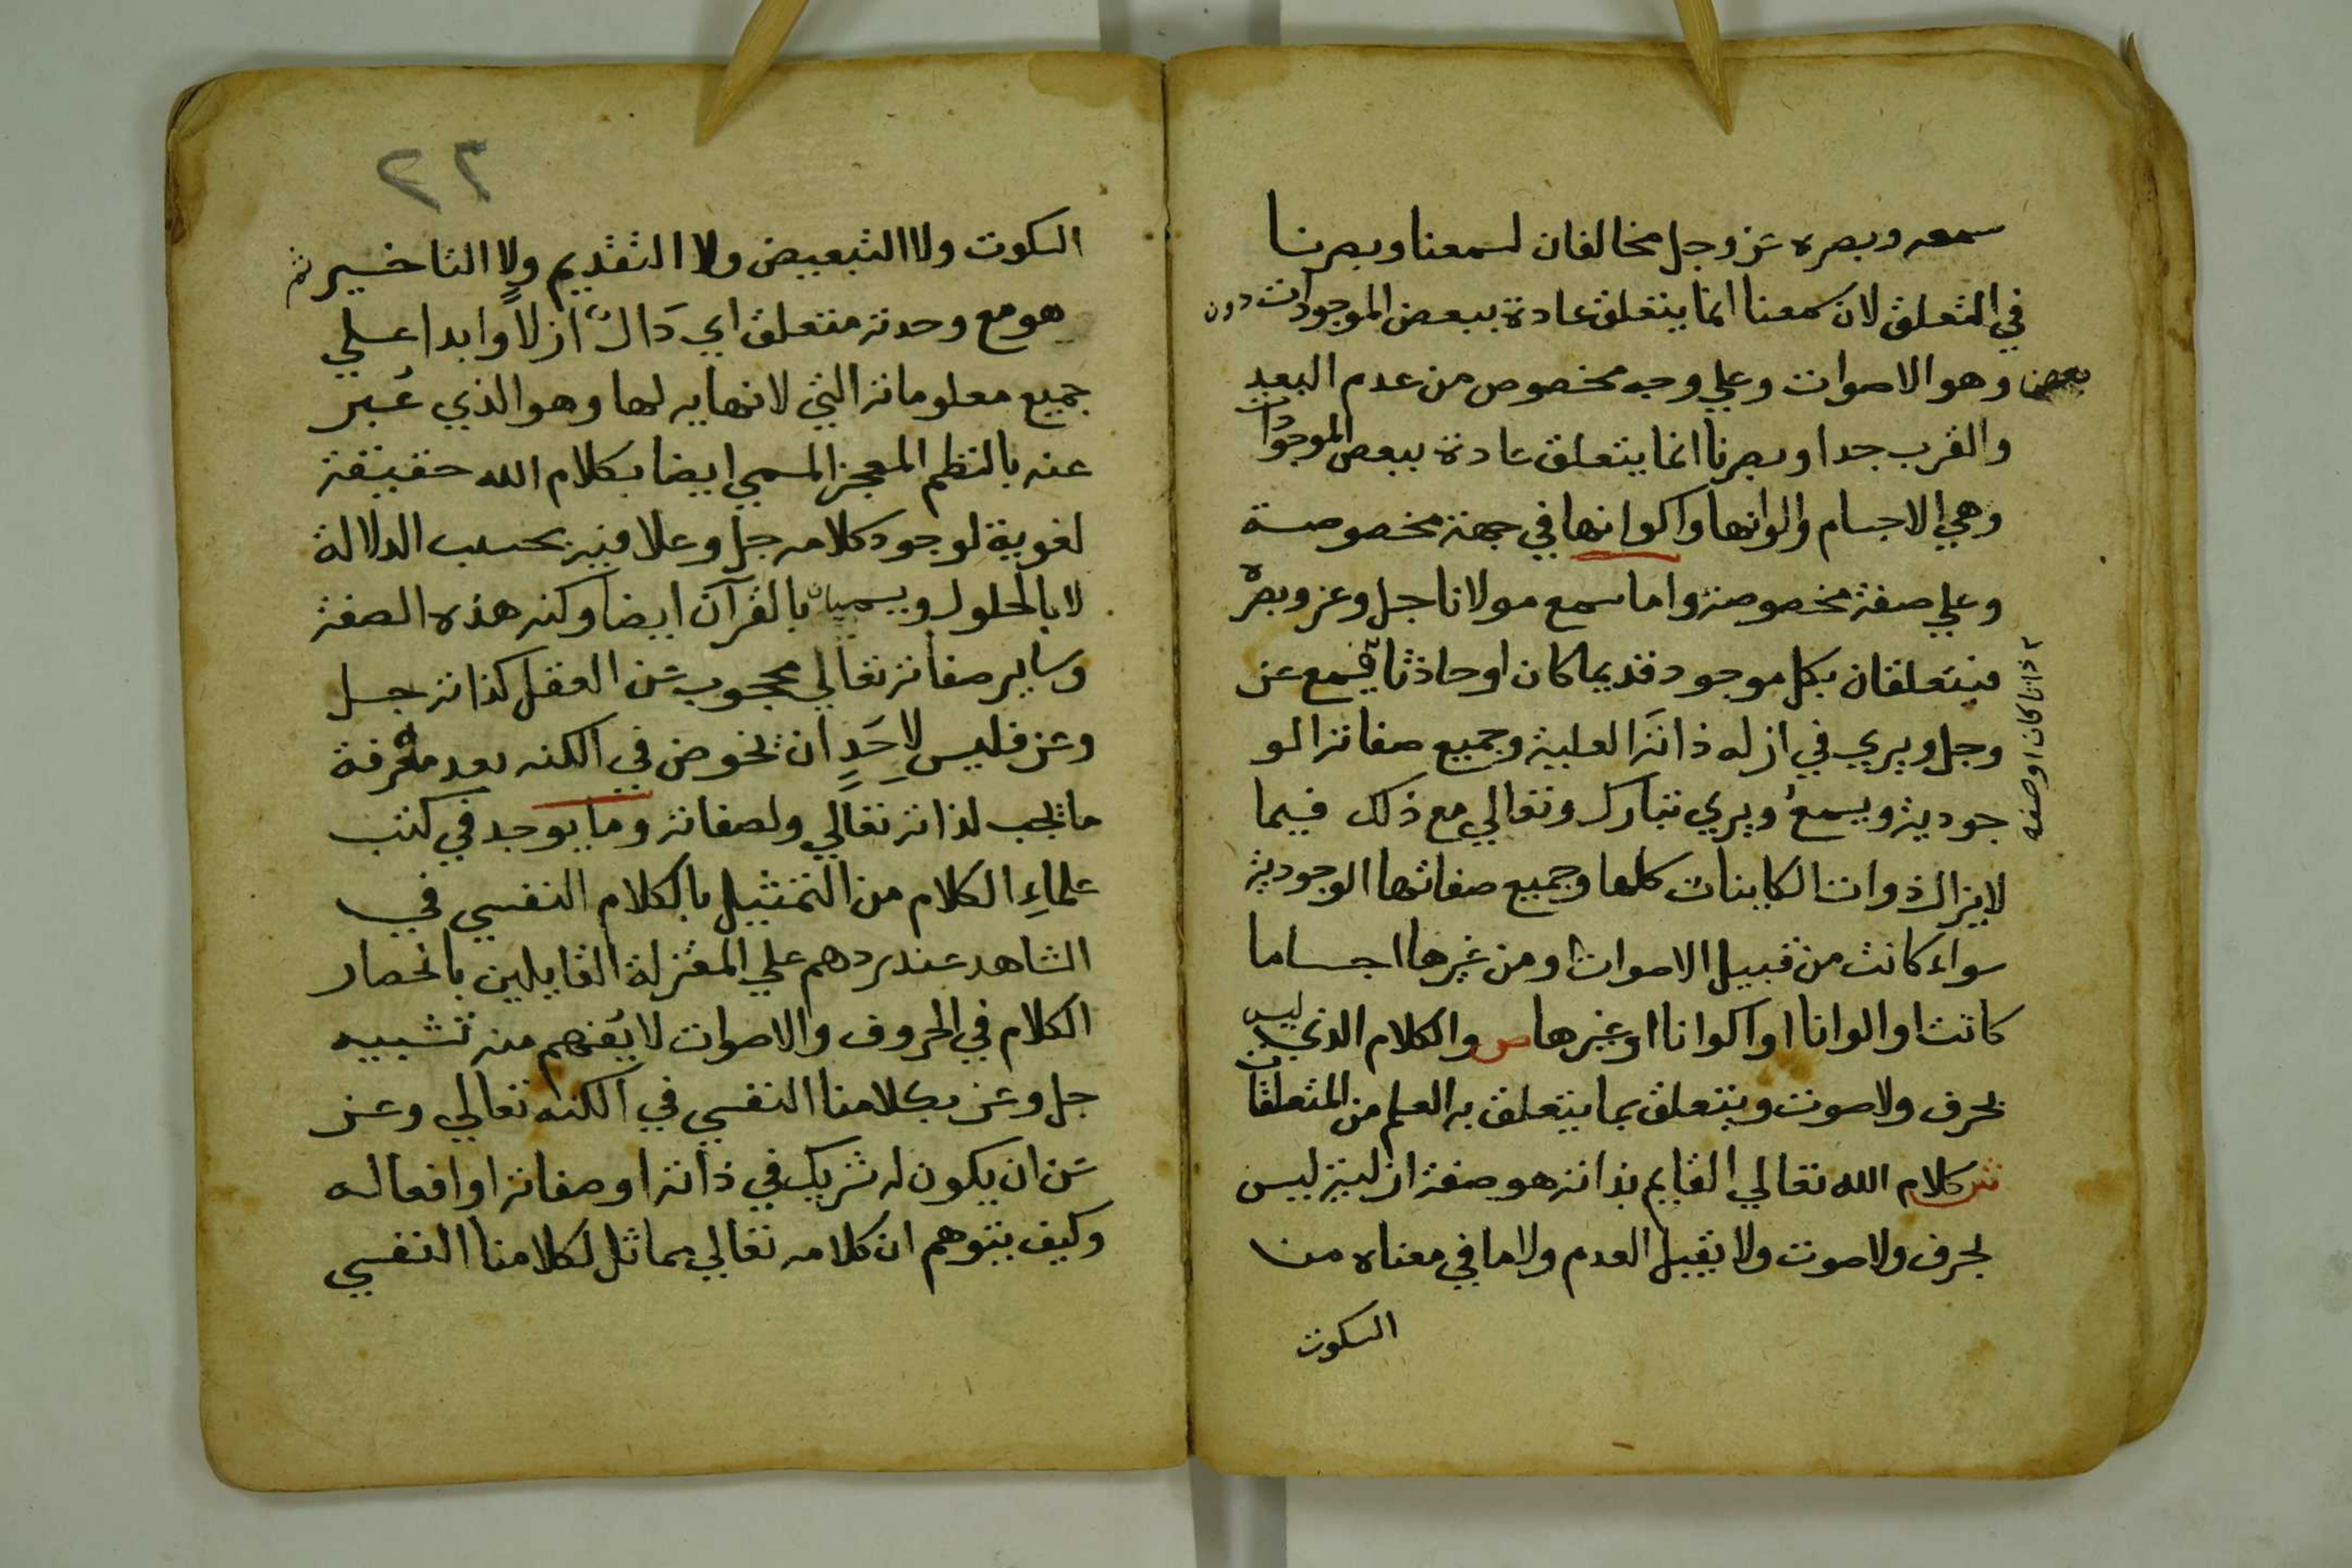 سمعه وبصره عز وجل مخالفان لسمعنا وبصرنا
في التعلق لان سمعنا انما يتعلق عادة ببعض الموجودات دون
بعض وهو الاصوات وعلي وجه مخصوص من عدم البعد
والقرب جدا وبصرنا انما يتعلق عادة ببعض الموجودات
وهي الاجسام والوانها واكوانها في جهة مخصوصة
وعلي صفة مخصوصة واما سمع مولانا جل وعز وبصره
فيتعلقان بكل موجود قديما كان او حادثا فيسمع عز
وجل ويري في ازله ذاته العلية وجميع صفاته الو
جودية ويسمع ويري تبارك وتعالي مع ذلك فيما
لا يزال ذوات الكاينات كلها وجميع صفاتها الوجودية
سواء كانت من قبيل الاصوات او من غيرها اجساما
كانت او الوانا او اكوانا او غيرها ص والكلام الذي ليس
بحرف ولا صوت ويتعلق بما يتعلق به العلم من المتعلقات
ش كلام الله تعالي القايم بذاته هو صفة ازلية ليس
بحرف ولا صوت ولا يقبل العدم ولا ما في معناه من
السكوت
ذاتا كان او صفة
٢٢
السكوت ولا التبعيض ولا التقديم ولا التاخير ثم
هو مع وحدته متعلق اي دَال ازلاً وابدا علي
جميع معلوماته التي لا نهاية لها وهو الذي عُبر
عنه بالنظم المعجز المسمي ايضا بكلام الله حقيقة
لغوية لوجود كلامه جل وعلا فيه بحسب الدلالة
لا بالحلول ويسميان بالقرآن ايضا وكنه هذه الصفة
وساير صفاته تعالي محجوب عن العقل كذاته جل
وعز فليس لاحَدٍ ان يخوض في الكنه بعد معرفة
ما يجب لذاته تعالي ولصفاته وما يوجد في كتب
علماءِ الكلام من التمثيل بالكلام النفسي في
الشاهد عند ردهم علي المعتزلة القايلين بانحصار
الكلام في الحروف والاصوات لا يُفهم منه تشبيه
جل وعز بكلامنا النفسي في الكنه تعالي وعز
عن ان يكون له شريك في ذاته او صفاته او افعاله
وكيف يتوهم ان كلامه تعالي مماثل لكلامنا النفسي